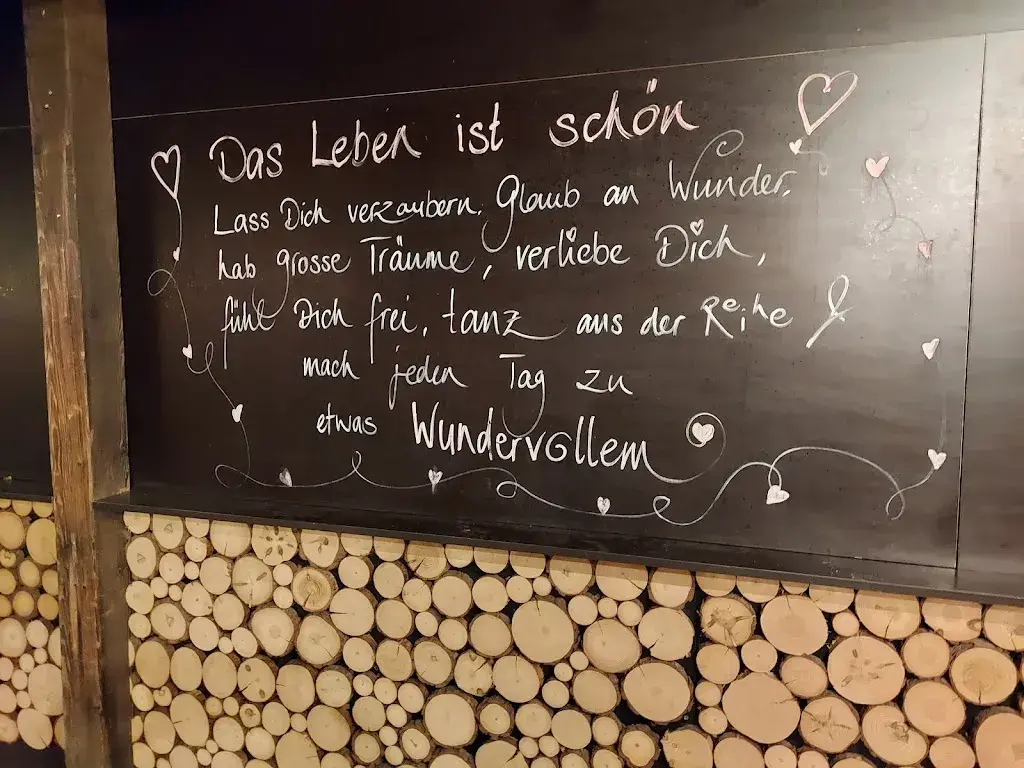 Das Leben ist schön
Lass Dich verzaubern. Glaub an Wunder,
hab grosse Träume, verliebe Dich,
fühl Dich frei, tanz aus der Reihe &
mach jeden Tag zu
etwas Wundervollem